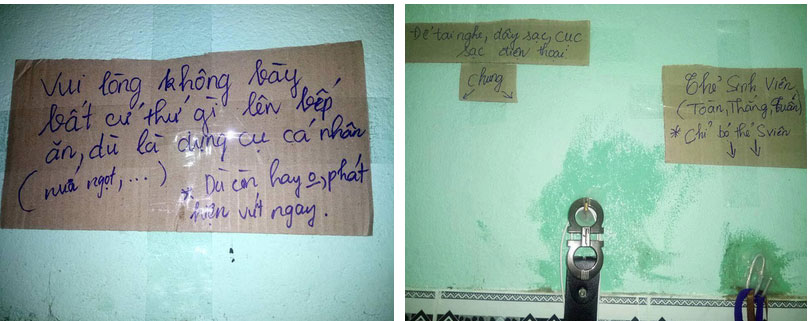 Vui lòng không bày
bất cứ thứ gì lên bếp
ăn, dù là dụng cụ cá nhân
(nước ngọt, ...)
* Dù còn hay o, phát
hiện vứt ngay.
Để tai nghe, dây sạc, cục
sạc điện thoại
chung
Thẻ Sinh Viên
(Toàn, Thắng, Tuấn)
* Chỉ bỏ thẻ Sviên